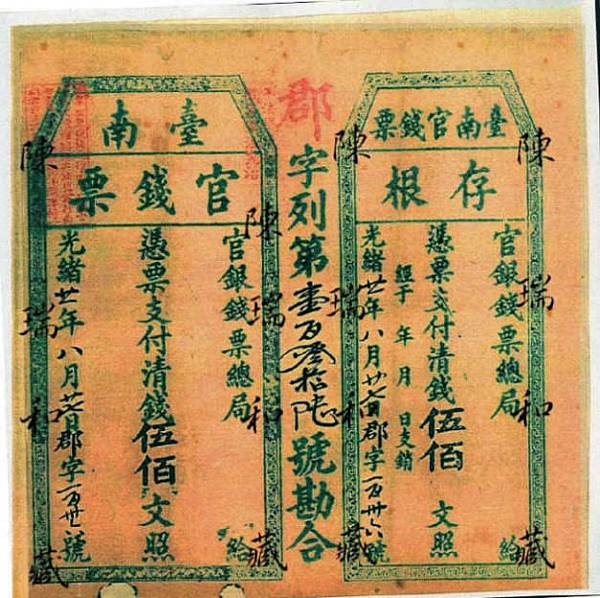 臺南官錢票
存根
官銀錢票總局給
憑票支付清錢伍佰文照
經手 年 月 日支銷
光緒廿一年八月廿七日郡字一百卅六號
郡字列第壹百叁拾陸號勘合
臺南
官錢票
官銀錢票總局給
憑票支付清錢伍佰文照
光緒廿一年八月廿七日郡字一百卅六號
陳瑞和藏
陳瑞和藏
陳瑞和藏
陳瑞和藏